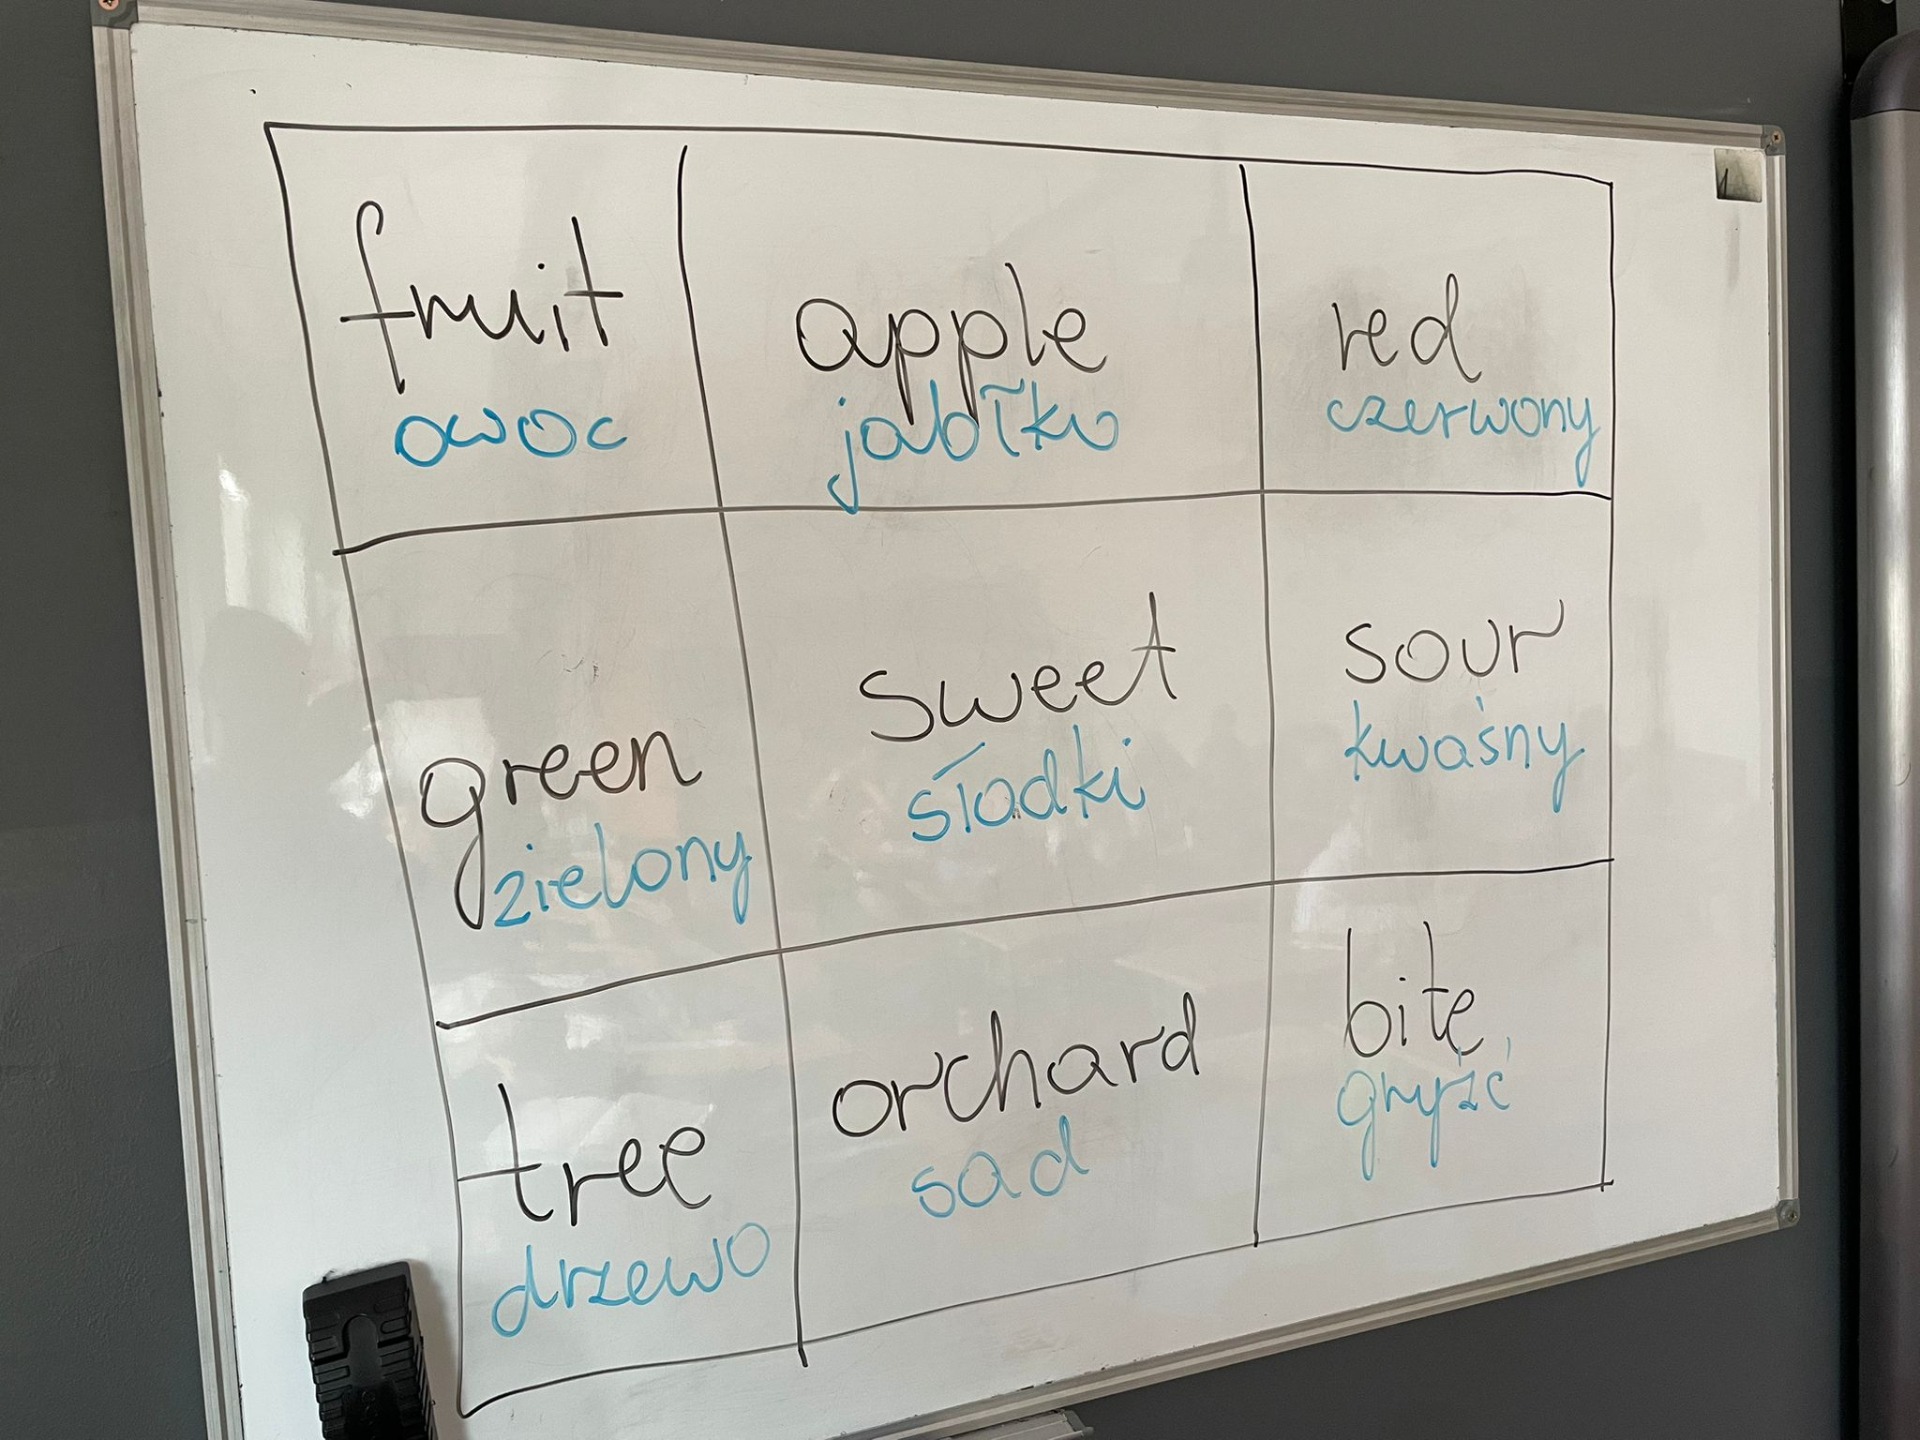 fruit
owoc
apple
jabłko
red
czerwony
green
zielony
sweet
słodki
sour
kwaśny
tree
drzewo
orchard
sad
bite
gryźć